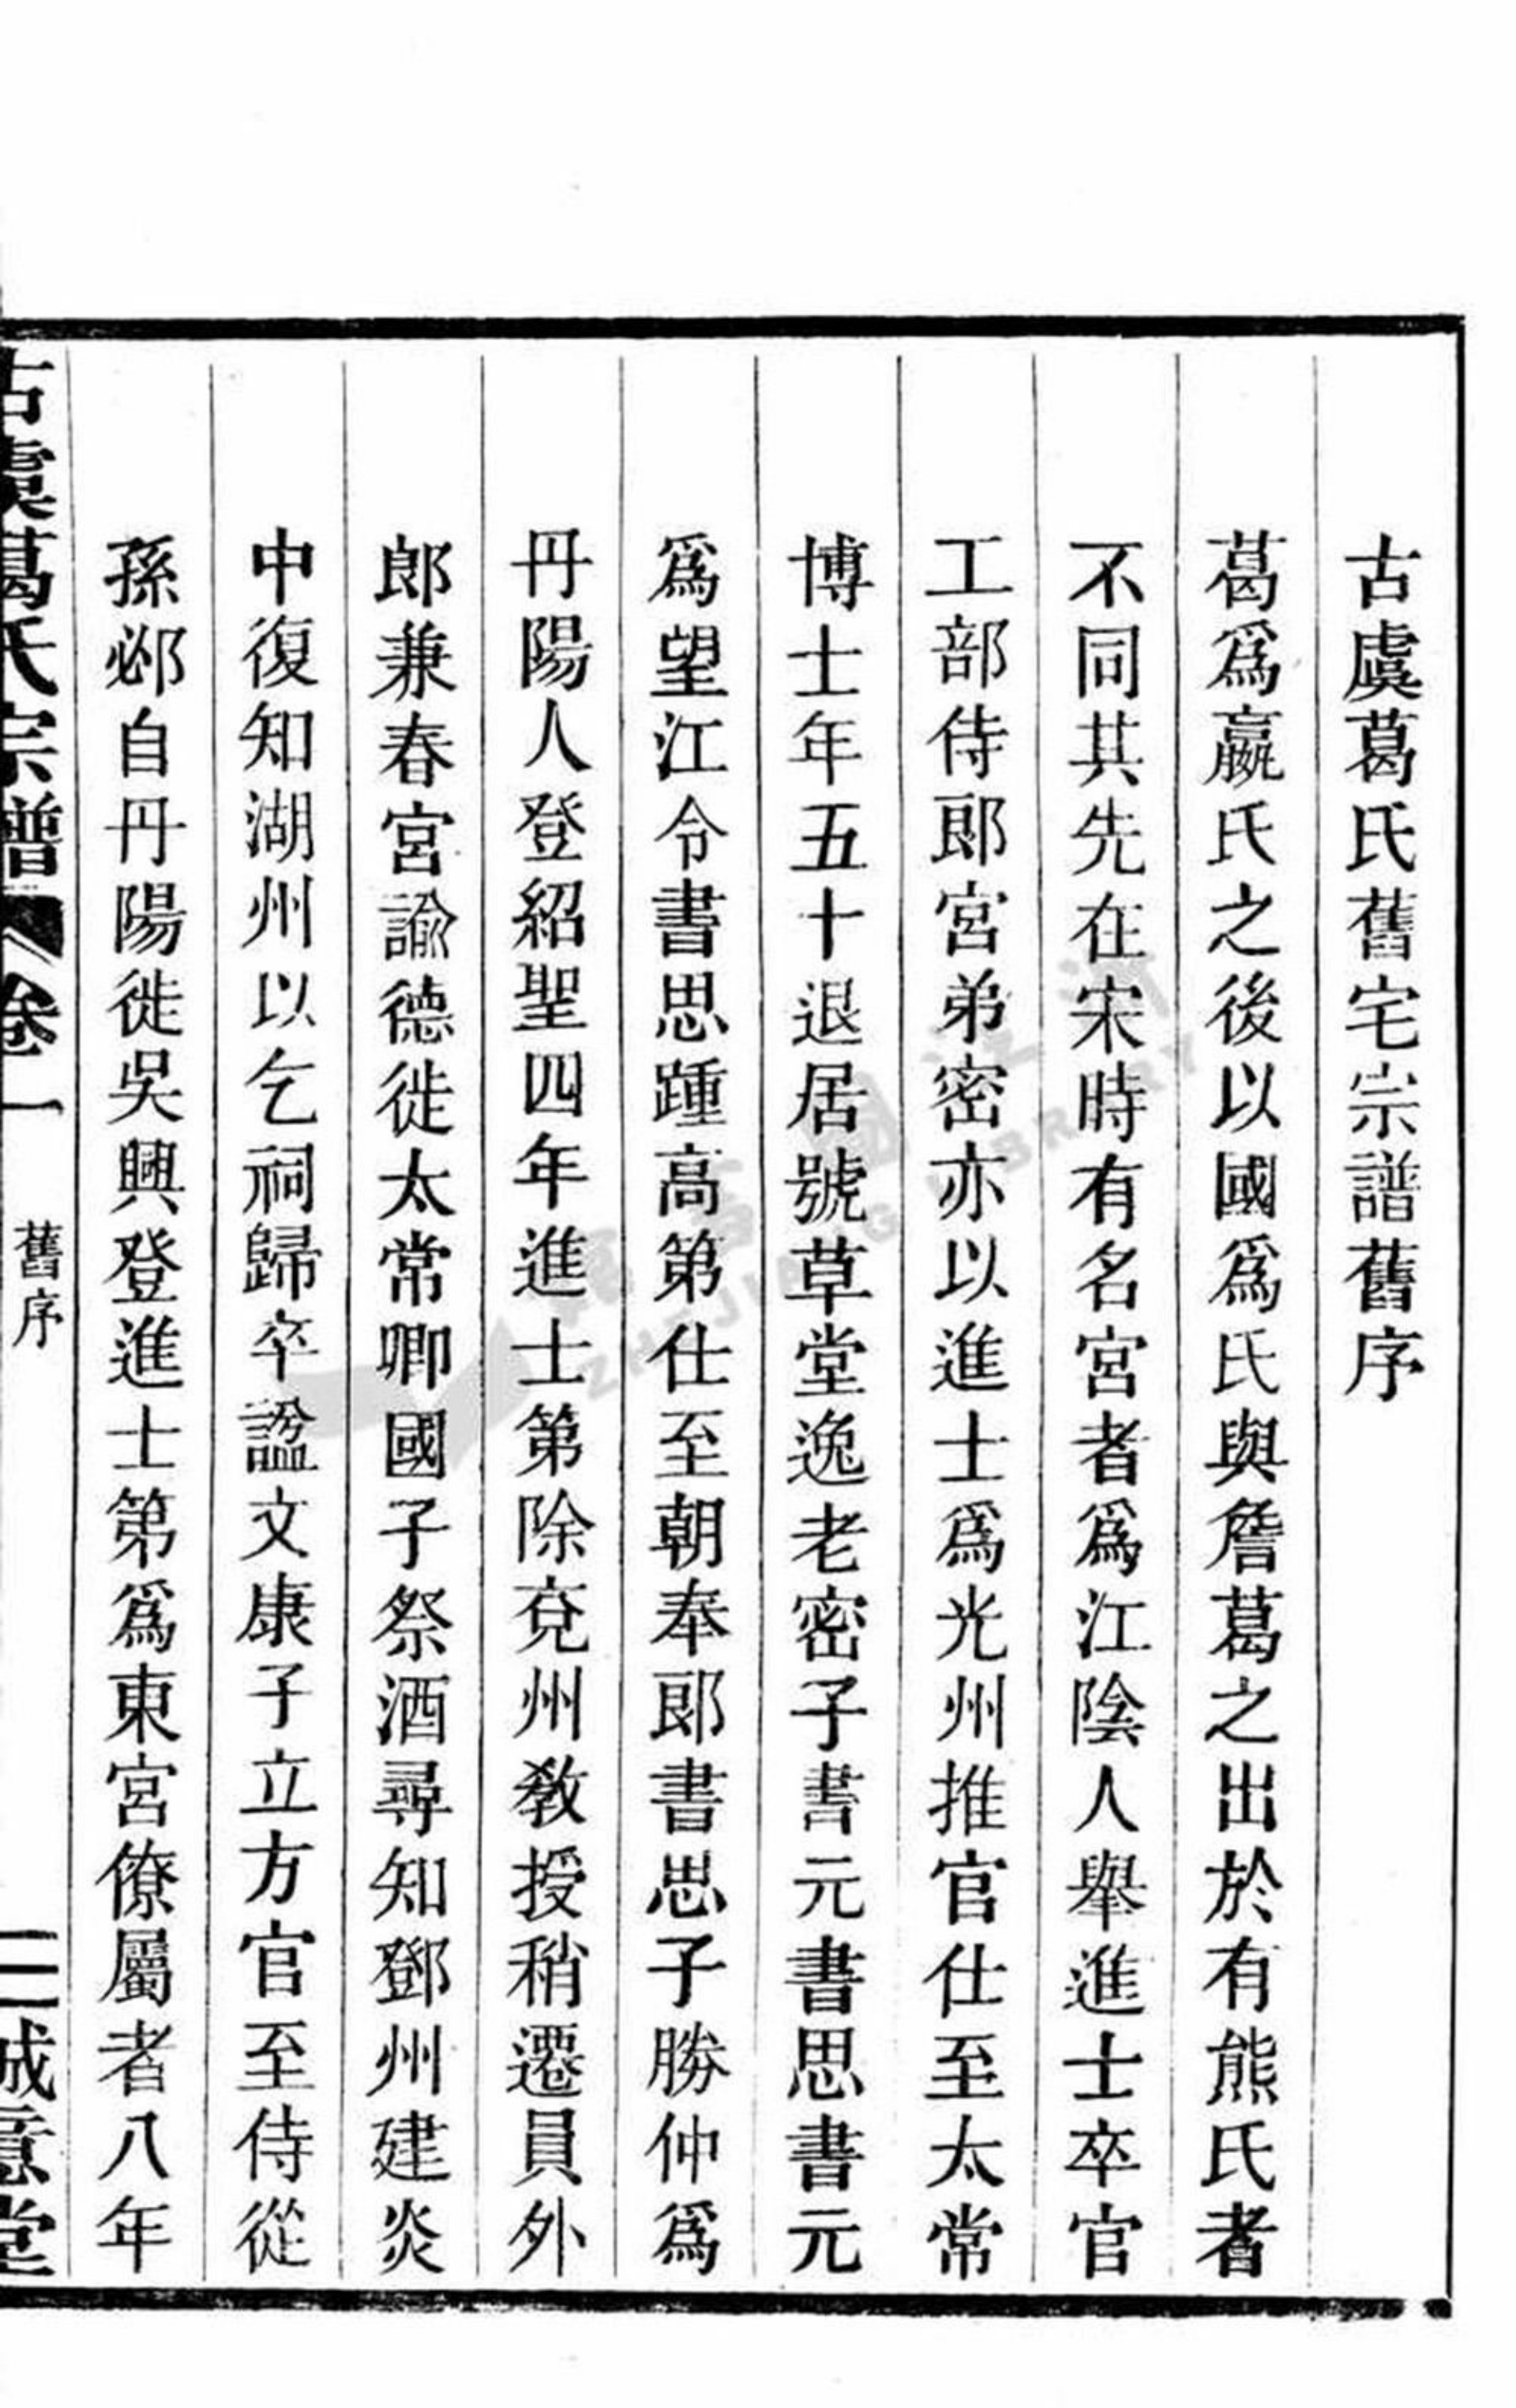 古虞葛氏舊宅宗譜舊序
葛爲嬴氏之後以國爲氏與詹葛之出於有熊氏者
不同其先在宋時有名宮者爲江陰人舉進士卒官
工部侍郎宮弟密亦以進士爲光州推官仕至太常
博士年五十退居號草堂逸老密子書元書思書元
爲望江令書思踵高第仕至朝奉郎書思子勝仲爲
丹陽人登紹聖四年進士第除兗州敎授稍遷員外
郎兼春宮諭德徙太常卿國子祭酒尋知鄧州建炎
中復知湖州以乞祠歸卒諡文康子立方官至侍從
孫邲自丹陽徙吳興登進士第爲東宮僚屬者八年
古虞葛氏宗譜 卷一 舊序 二 誠意堂
浙江圖書館
ZHEJIANG LIBRARY